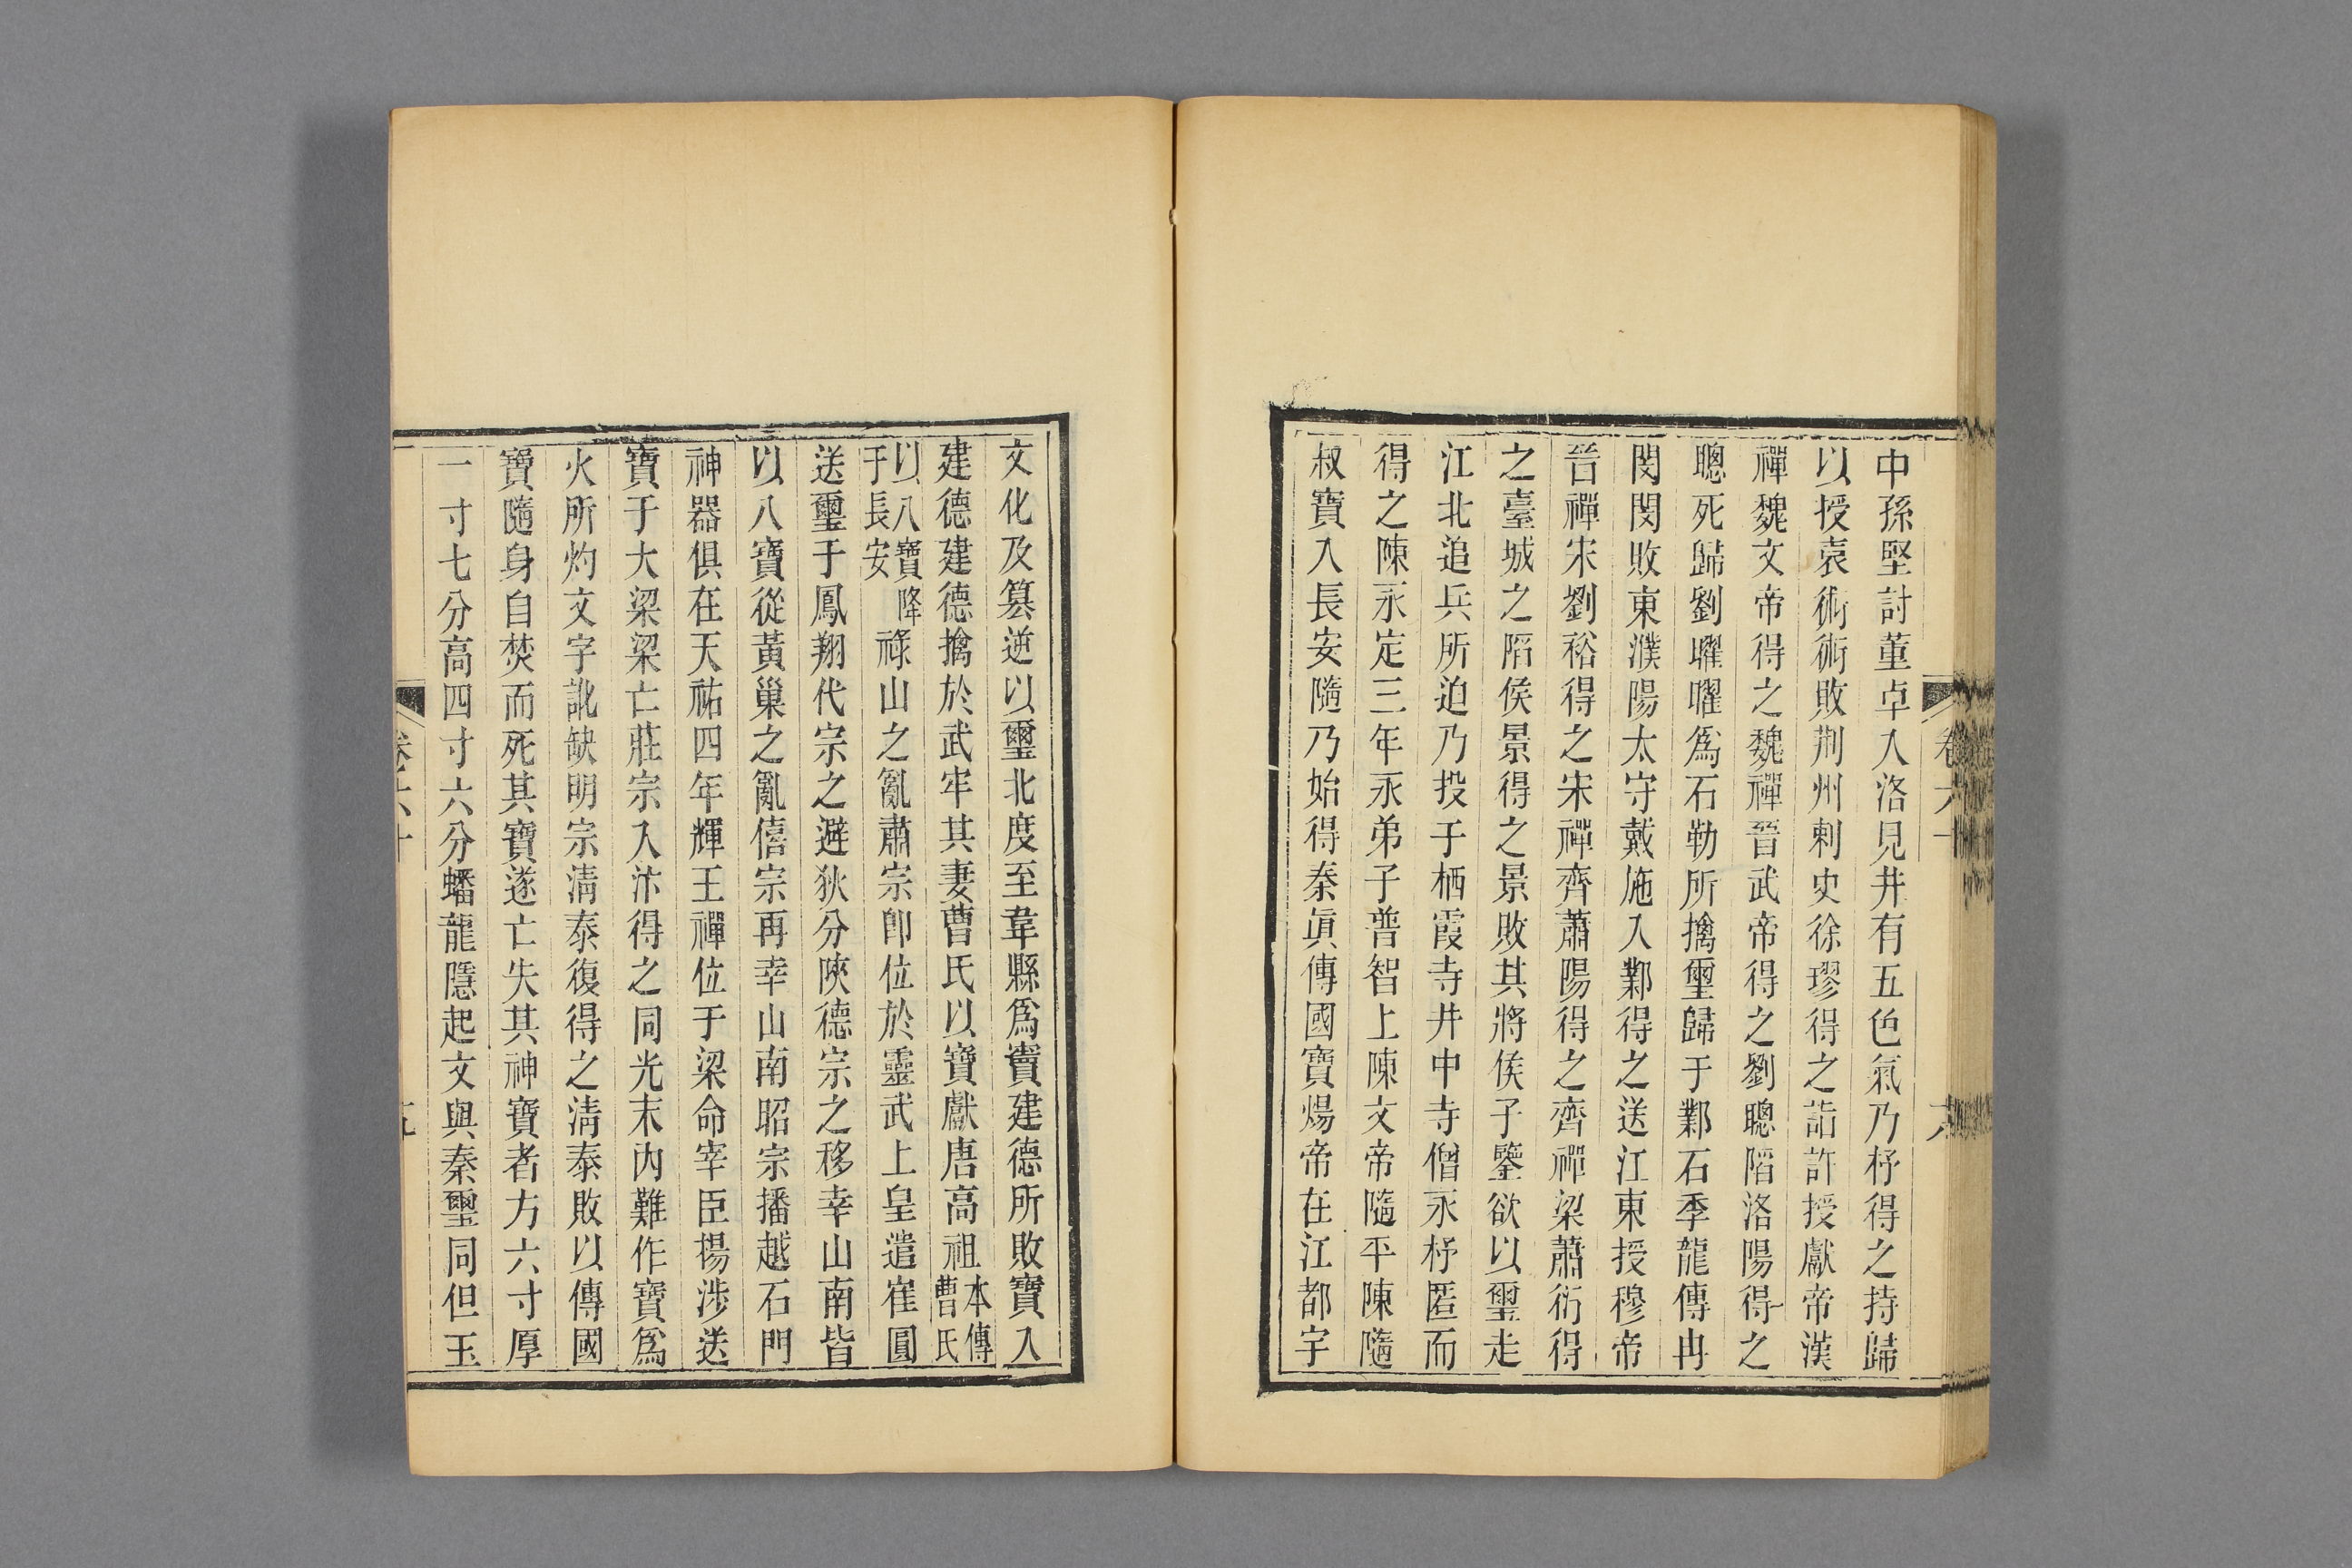 中孫堅討董卓入洛見井有五色氣乃杼得之持歸
以授袁術術敗荆州刺史徐璆得之詣許授獻帝漢
禪魏文帝得之魏禪晉武帝得之劉聰陷洛陽得之
聰死歸劉曜曜爲石勒所擒璽歸于鄴石季龍傳冉
閔閔敗東濮陽太守戴施入鄴得之送江東授穆帝
晉禪宋劉裕得之宋禪齊蕭陽得之齊禪梁蕭衍得
之臺城之陷侯景得之景敗其將侯子鑒欲以璽走
江北追兵所迫乃投于栖霞寺井中寺僧永杼匿而
得之陳永定三年永弟子普智上陳文帝隨平陳隨
叔寶入長安隨乃始得秦眞傳國寶煬帝在江都宇
文化及簒逆以璽北度至韋縣爲竇建德所敗寶入
建德建德擒於武牢其妻曹氏以寶獻唐高祖本傳曹氏
以八寶降于長安祿山之亂肅宗卽位於靈武上皇遣崔圓
送璽于鳳翔代宗之避狄分陝德宗之移幸山南皆
以八寶從黃巢之亂僖宗再幸山南昭宗播越石門
神器俱在天祐四年輝王禪位于梁命宰臣揚涉送
寶于大梁梁亡莊宗入汴得之同光末內難作寶爲
火所灼文字訛缺明宗淸泰復得之淸泰敗以傳國
寶隨身自焚而死其寶遂亡失其神寶者方六寸厚
一寸七分高四寸六分蟠龍隱起文與秦璽同但玉
卷六十